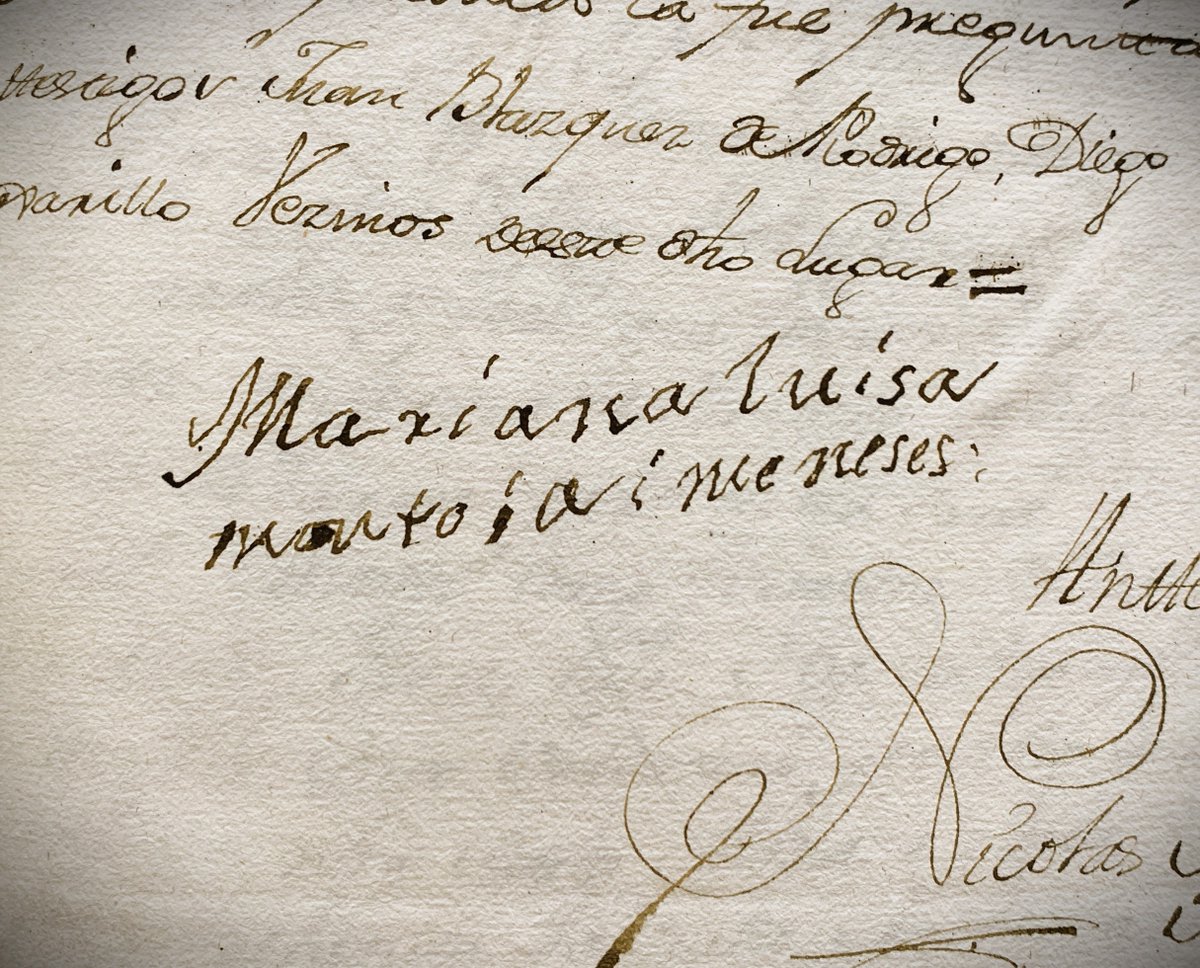 la fue pregunta
testigos Juan Blazquez de Rodrigo, Diego
Vezinos deste dho Lugar=
Mariana luisa
montoia i meneses:
Antt
Nicolas